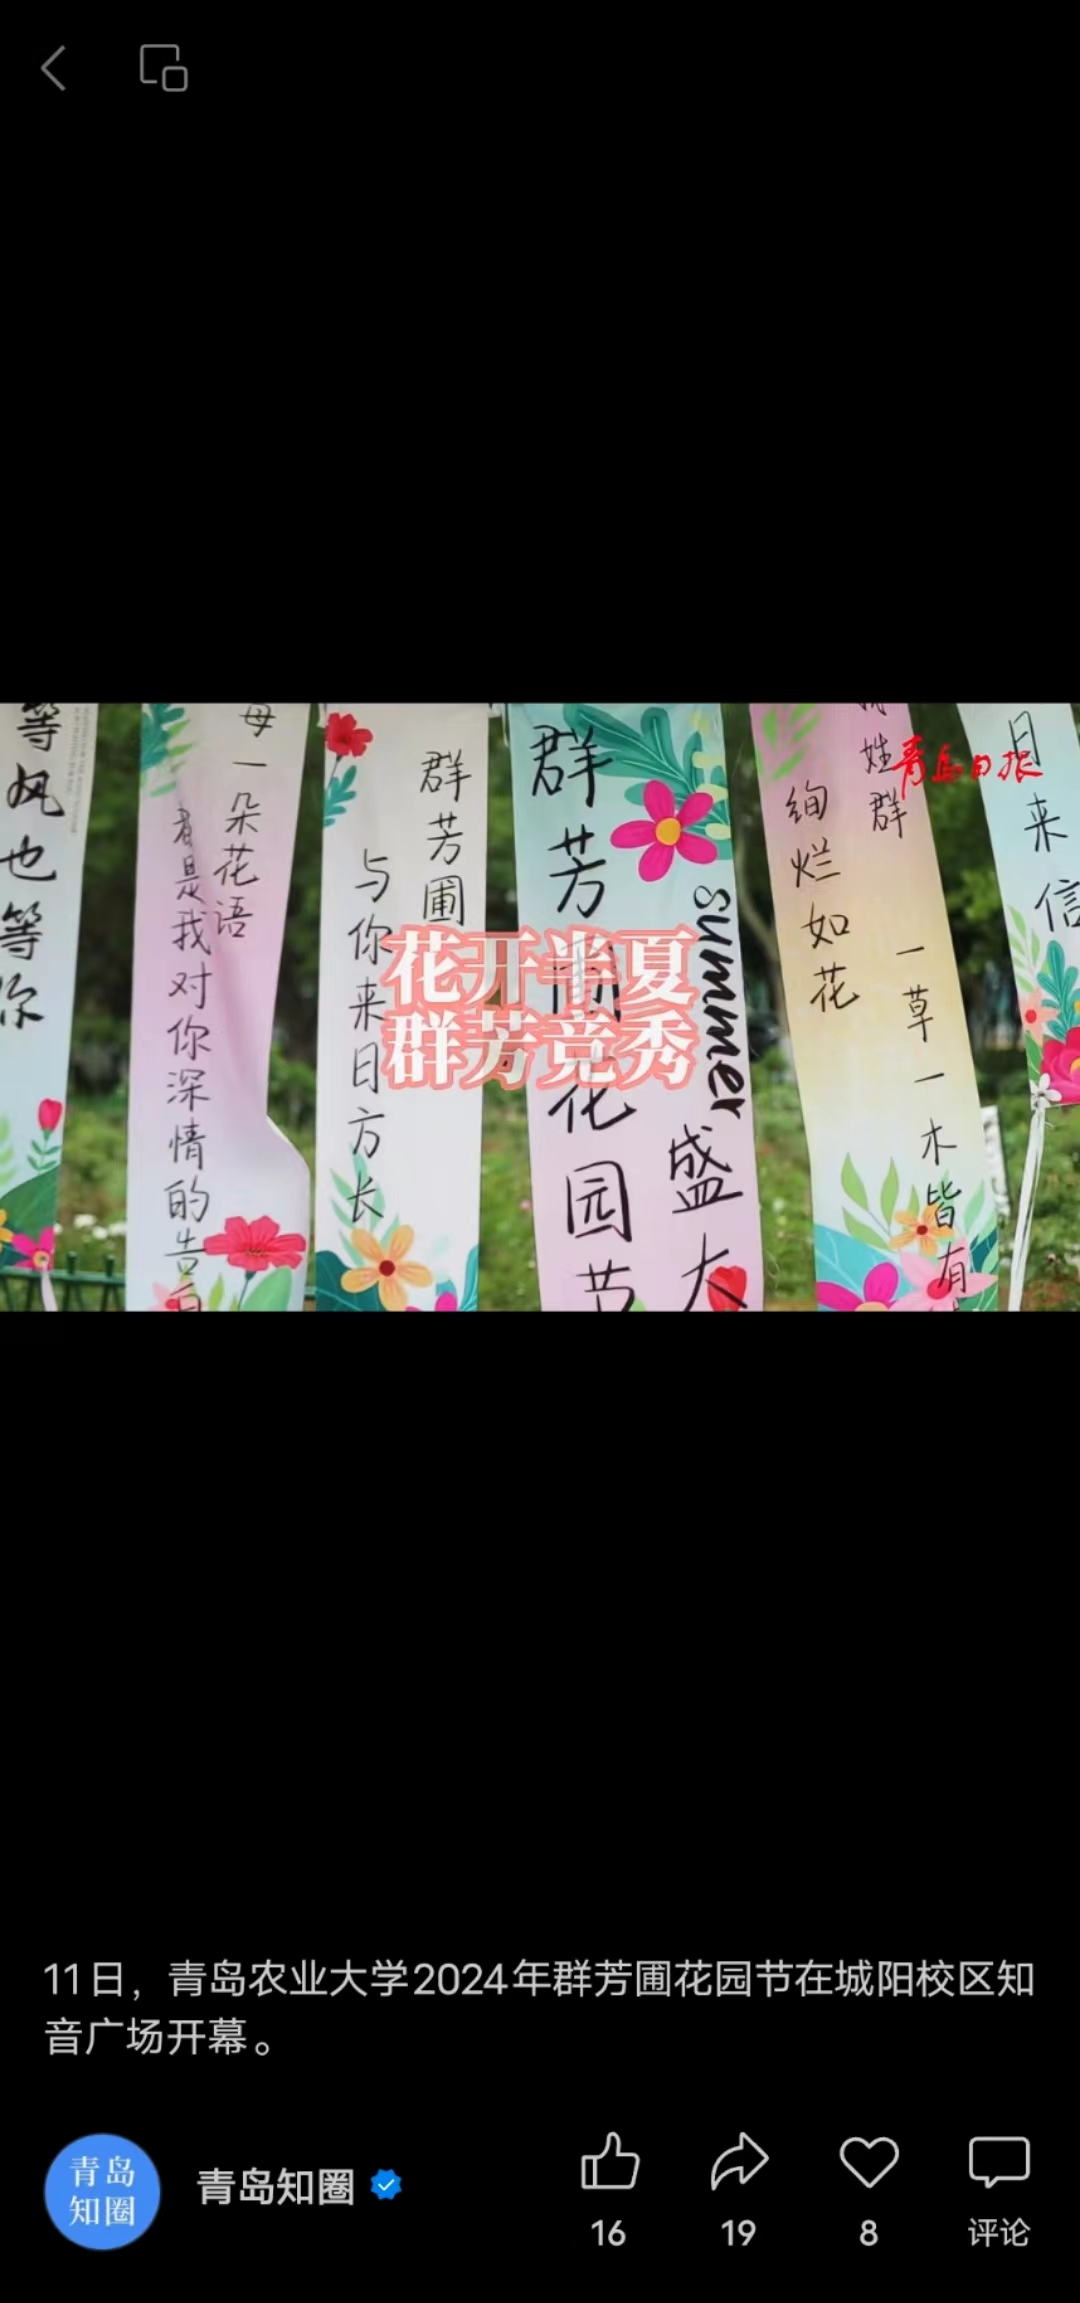 等风也等你
每一朵花语
都是我对你深情的告白
群芳圃
与你来日方长
群芳圃花园节
summer
盛大
姓群
绚烂如花
一草一木皆有
日来信
青岛日报
花开半夏
群芳竞秀
11日，青岛农业大学2024年群芳圃花园节在城阳校区知
音广场开幕。
青岛知圈
青岛
知圈
16
19
8
评论